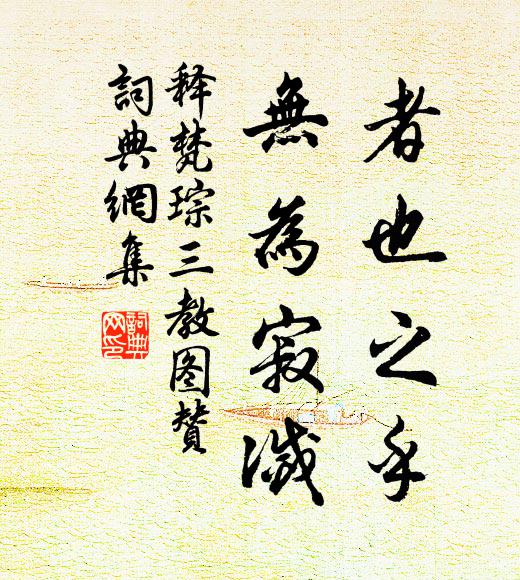 者也之乎
無為寂滅
释梵琮三教图赞
詞典網集
詞典網印